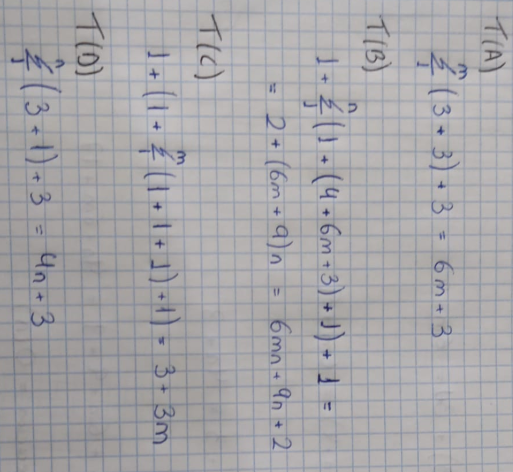 T(A)
m
Σ (3 + 3) + 3 = 6m + 3
1
T(B)
n
1 + Σ (1 + (4 + 6m + 3) + 1) + 1 =
1
= 2 + (6m + 9)n = 6mn + 9n + 2
T(C)
m
1 + (1 + Σ (1 + 1 + 1) + 1) = 3 + 3m
1
T(D)
n
Σ (3 + 1) + 3 = 4n + 3
1